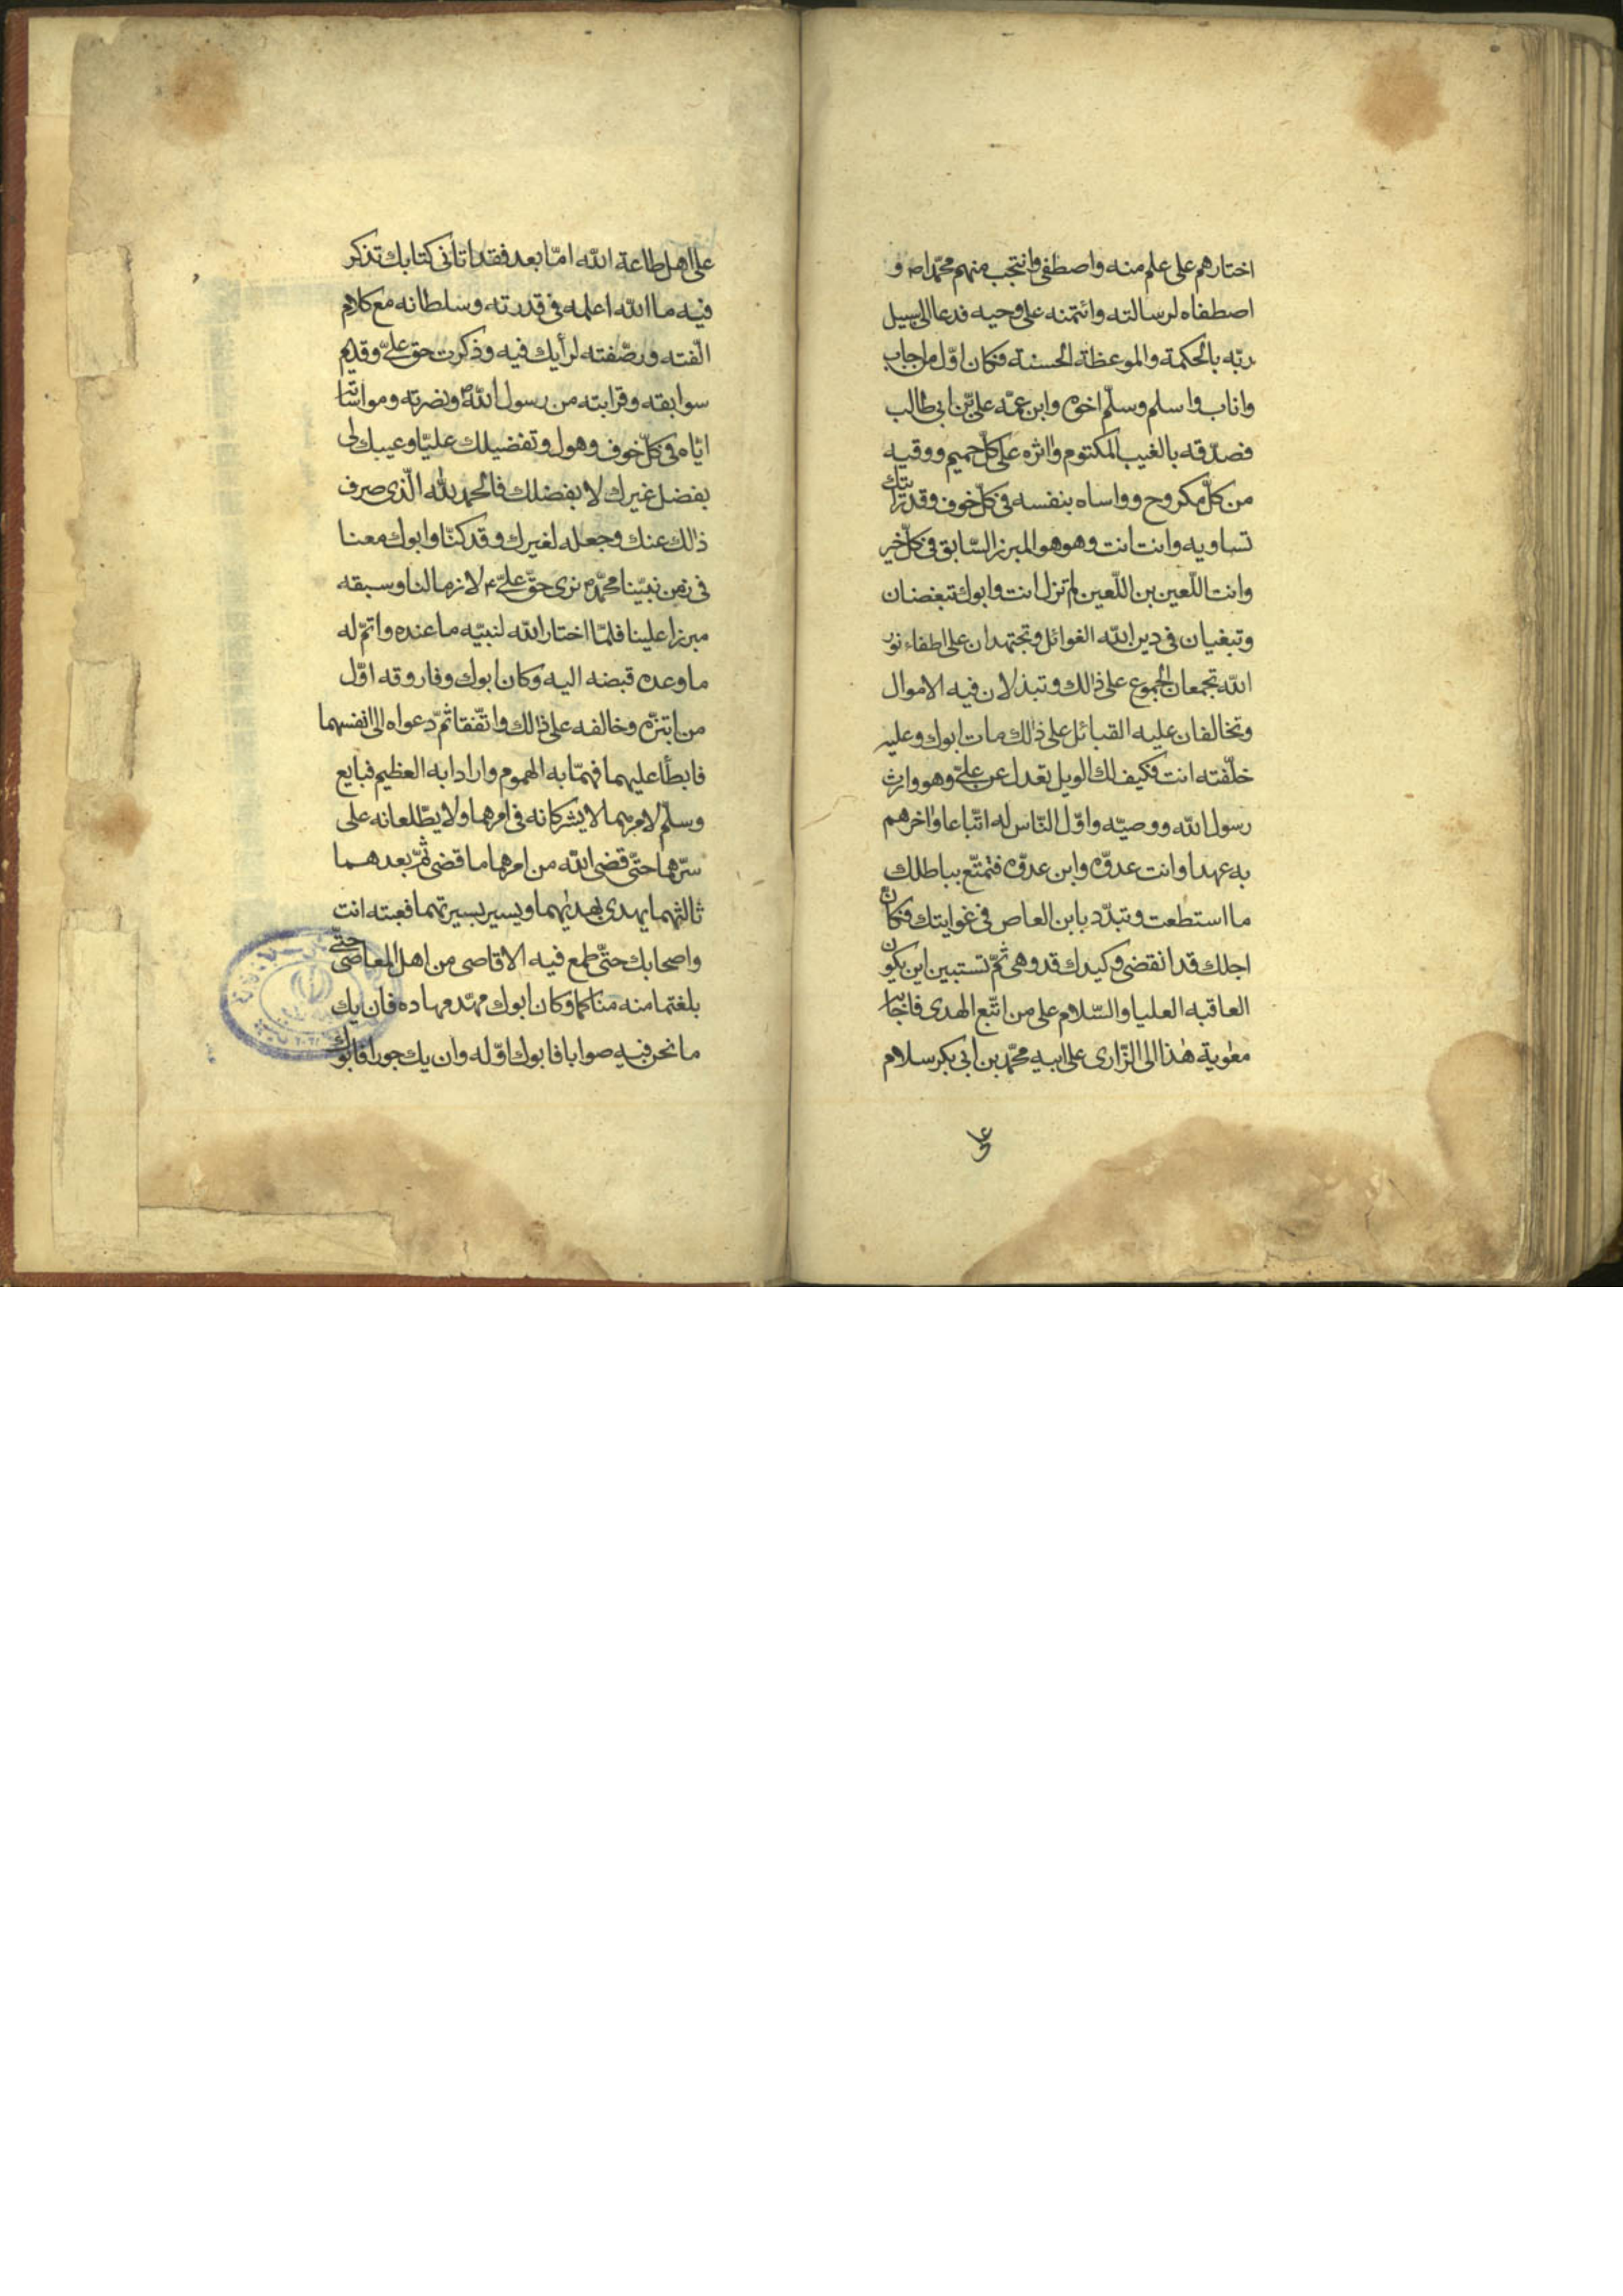 اختارهم على علم منه واصطفى وانتجب منهم محمّدا ص و
اصطفاه لرسالته وائتمنه على وحيه فدعا الى سبيل
ربّه بالحكمة والموعظة الحسنة فكان اوّل من اجاب
واناب واسلم وسلّم اخوه وابن عمّه علىّ بن ابى طالب
فصدّقه بالغيب المكتوم واثره على كلّ حميم ووقيه
من كلّ مكروح وواساه بنفسه فى كلّ خوف وقد رايتك
تساويه وانت انت وهو هو المبرز السّابق فى كلّ خير
وانت اللّعين بن اللّعين لم تزل انت وابوك تبغضان
وتبغيان فى دين الله الغوائل وتجتهدان على اطفاء نور
الله تجمعان الجموع على ذالك وتبذلان فيه الاموال
وتخالفان عليه القبائل على ذلك مات ابوك وعليه
خلّفته انت فكيف لك الويل تعدل عن علىّ وهو وارث
رسول الله ووصيّه واوّل النّاس له اتّباعا واخرهم
به عهدا وانت عدوّه وابن عدوّه فتمتّع بباطلك
ما استطعت وتبدّد بابن العاص فى غوايتك فكان
اجلك قد انقضى وكيدك قد وهى ثمّ تستبين اين يكون
العاقبه العليا والسّلام على من اتّبع الهدى فاجابه
معوية هذا الى الزّارى على ابيه محمّد بن ابى بكر سلام
على
على اهل طاعة الله امّا بعد فقد اتانى كتابك تذكر
فيه ما الله اعلمه فى قدرته وسلطانه مع كلام
الّفته ورصّفته لرأيك فيه وذكرت حق علىّ وقديم
سوابقه وقرابته من رسول الله ص ونصرته ومواساته
ايّاه فى كلّ خوف وهول وتفضيلك عليّا وعيبك لى
بفضل غيرك لا بفضلك فالحمد لله الّذى صرف
ذالك عنك وجعله لغيرك وقد كنّا وابوك معنا
فى زمن نبيّنا محمّد ص نرى حقّ علىّ ع لازما لنا وسبقه
مبرزا علينا فلمّا اختار الله لنبيّه ما عنده واتمّ له
ما وعده قبضه اليه وكان ابوك وفاروقه اوّل
من ابتزّه وخالفه على ذالك واتّفقا ثمّ دعواه الى انفسهما
فابطأ عليهما فهمّا به الهموم وارادا به العظيم فبايع
وسلّم لامرهما لا يشركانه فى امرهما ولا يطّلعانه على
سرّهما حتّى قضى الله من امرهما ما قضى ثمّ بعدهما
ثالثهما يهدى بهديهما ويسير بسيرتهما فعبته انت
واصحابك حتّى طمع فيه الاقاصى من اهل المعاصى حتّى
بلغتما منه مناكما وكان ابوك مهّد مهاده فان يك
ما نحن فيه صوابا فابوك اوّله وان يك جورا فابوك